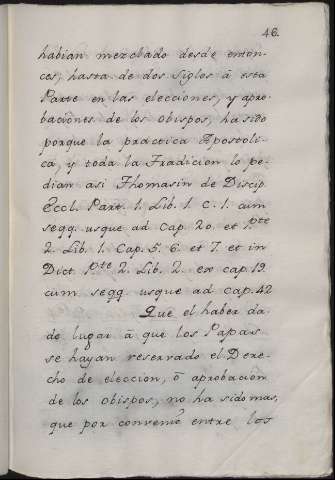 46.
habian mezclado desde enton-
ces, hasta de dos siglos â esta
Parte en las elecciones, y apro-
baciônes de los obispos, ha sido
porque la practica Apostoli-
ca, y toda la Tradicion lo pe-
dian asi Thomasin de Discip
Eccl. Part. 1. Lib. 1. C. 1. cum
seqq. usque ad Cap. 20. et Pte
2. Lib. 1. Cap. 5. 6. et 7. et in
Dict Pte 2. Lib. 2. ex cap. 19.
cum seqq. usque ad cap. 42
Que el haber da-
do lugar â que los Papas
se hayan reservado el Dere-
cho de eleccion, ô aprobaciôn
de los obispos, no ha sido mas,
que por convenio entre los